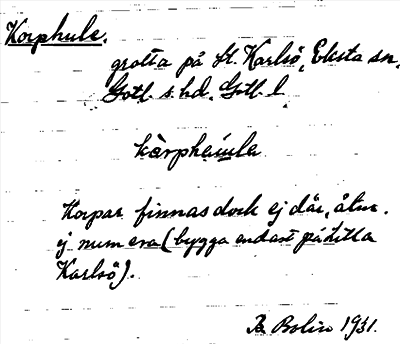 Korphule.
grotta på St. Karlsö, Eksta sn,
Gotl. s. hd. Gotl. l.
kàrphaìula
Korpar finnas dock ej där, åtm.
ej numera (bygga endast på Lilla
Karlsö).
Bolin 1931.